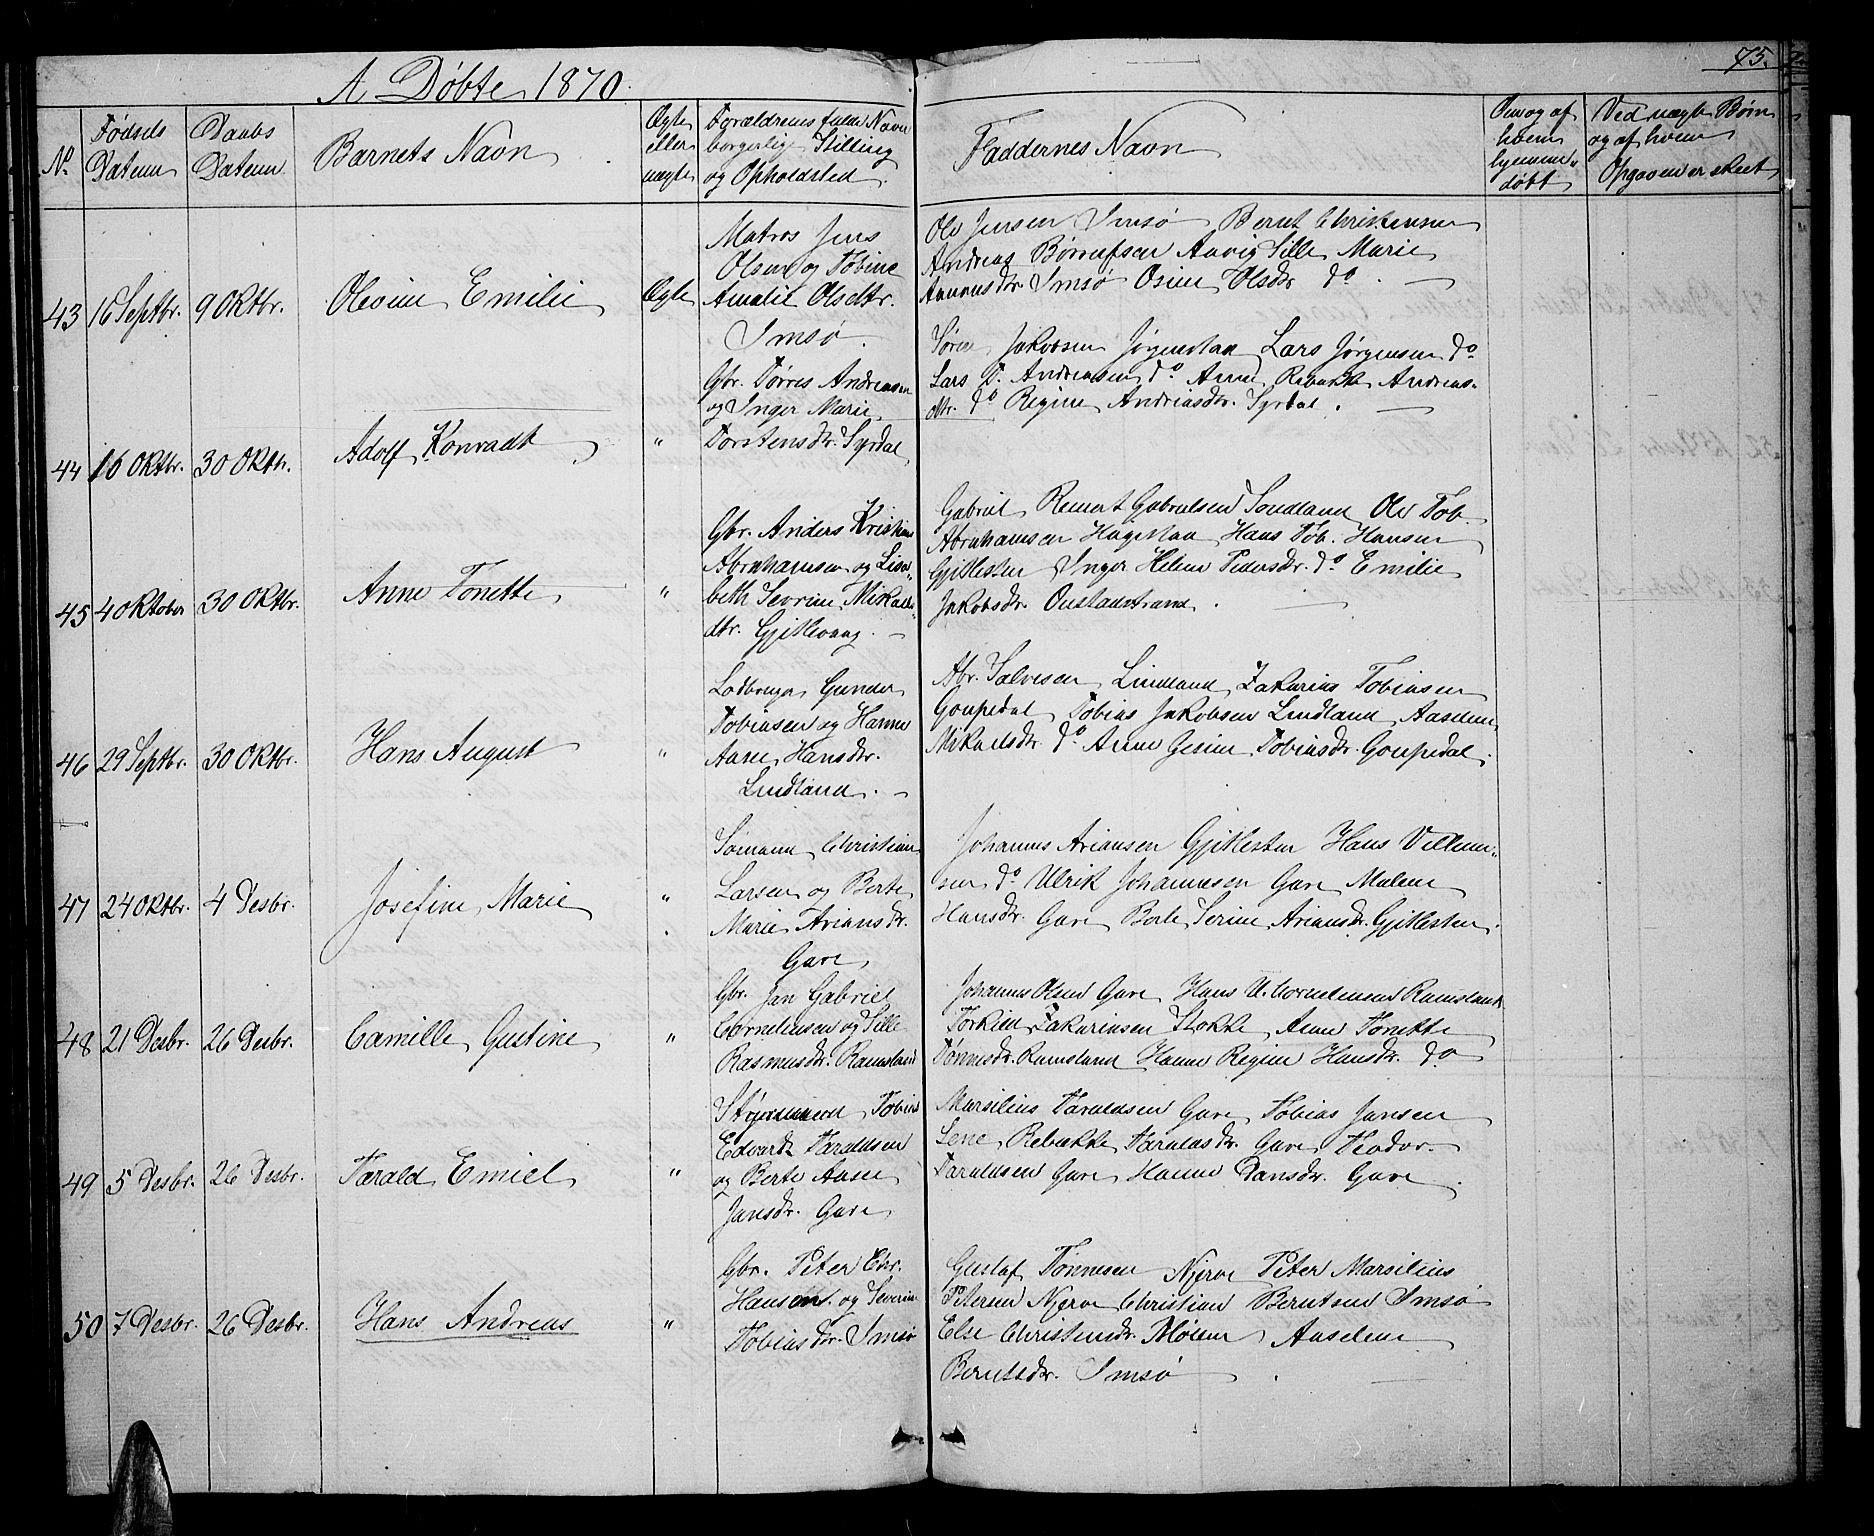 A. Døbte 1870.
75.
No.
Fødsels Datum
Daabs Datum
Barnets Navn
Ægte eller uægte
Forældrenes fulde Navn borgerlige Stilling og Opholdsted.
Faddernes Navn
Om og af hvem hjemmedøbt
Ved uægte Børn og af hvem Opgaven er skeet
43 16 Septbr. 9 Oktbr. Olevine Emilie Ægte
Matros Jens
Olsen og Tobine
Amalie Olsdtr.
Imsø.
Ole Jensen Imsø Bernt Christensen
Andreas Børrufsen Aavig Sille Marie
Aanensdtr. Imsø Osine Olsdtr. do.
44 16 Oktbr. 30 Oktbr. Adolf Konradt "
Gbr. Tørres Andreasen
og Inger Marie
Torstensdtr. Syrdal
Søren Jakobsen Jørgenstad Lars Jørgensen do
Lars T. Andreasen do Anne Rebekke Andreas-
dtr. do Regine Andreasdtr. Syrdal.
45 4 Oktober 30 Oktbr. Anne Tonette "
Gbr. Anders Kristian
Abrahamsen og Lisa-
beth Sevrine Mikaels-
dtr. Gjitlevaag.
Gabriel Reinert Gabrielsen Sondland Ole Tob.
Abrahamsen Hagestad Hans Tob. Hansen
Gjitlesten Inger Helene Pedersdtr. do Emilie
Jakobsdtr. Oustadstrand.
46 29 Septbr. 30 Oktbr. Hans August "
Lodbruger Gunder
Tobiasen og Hanne
Aase Hansdtr.
Lindland.
Abr. Salvesen Lindland Zakarias Tobiasen
Goupedal Tobias Jakobsen Lindland Aaselene
Mikaelsdtr. do Anne Gesine Tobiasdtr. Goupedal.
47 24 Oktbr. 4 Desbr. Josefine Marie "
Sømand Christian
Larsen og Berte
Marie Ariansdtr.
Gare
Johannes Ariansen Gjitlesten Hans Villum-
sen do Ulrik Johannesen Gare Malene
Hansdtr. Gare Berte Serine Ariansdtr. Gjitlesten.
48 21 Desbr. 26 Desbr. Camille Gustine "
Gbr. Jan Gabriel
Corneliusen og Sille
Rasmusdtr. Ramsland
Johannes Olsen Gare Hans U. Corneliusen Ramsland
Torkild Zakariasen Stokke Anne Tonette
Tønnesdtr. Ramsland Hanne Regine Hansdtr. do
49 5 Desbr. 26 Desbr. Tarald Emiel "
Styrmand Tobias
Edvardt Taraldsen
og Berte Aase
Jansdtr. Gare
Marsilius Taraldsen Gare Tobias Jansen
Lene Rebekke Taraldsdtr. Gare Teodor
Taraldsen Gare Hanne Dansdtr. Gare.
50 7 Desbr. 26 Desbr. Hans Andreas "
Gbr. Peter Chr.
Hansen. og Severine
Tobiasdtr. Imsø
Gustaf Tønnesen Njerve Peter Marsilius
Petersen Njerve Christian Berntsen Imsø
Else Christensdtr. Møien Aaselene
Berntsdtr. Imsø.